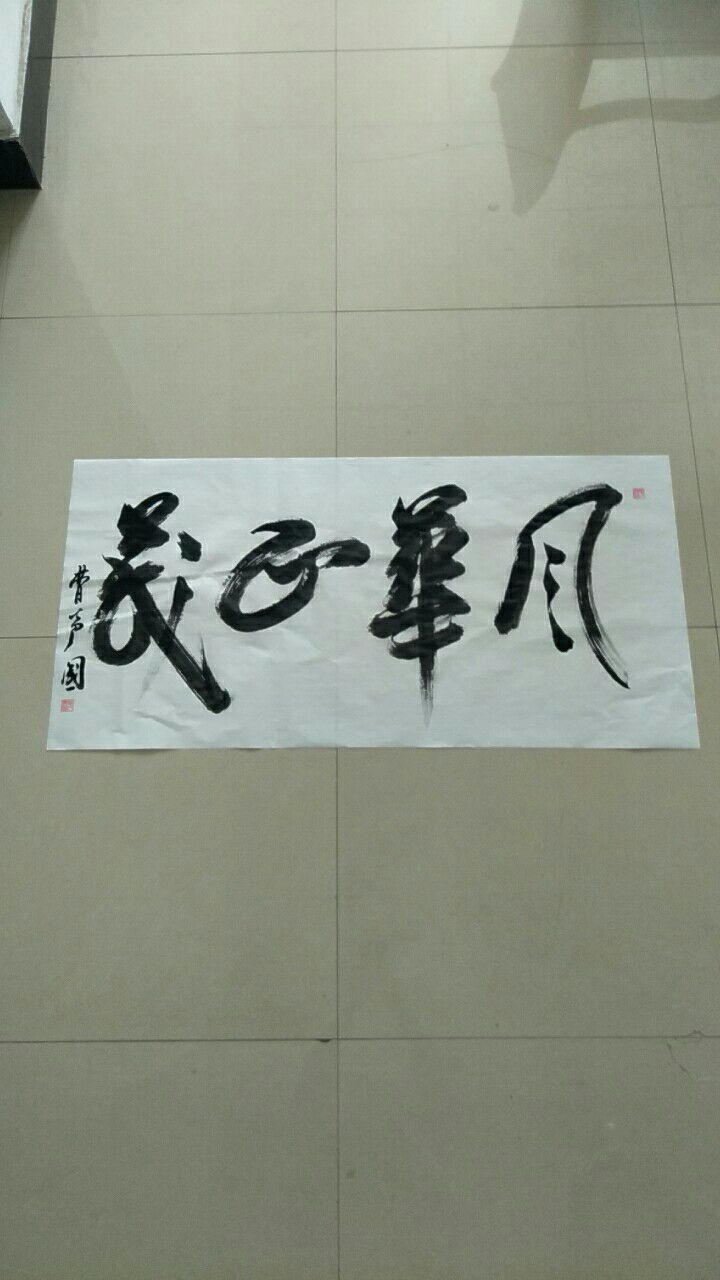 风華正茂
曹國